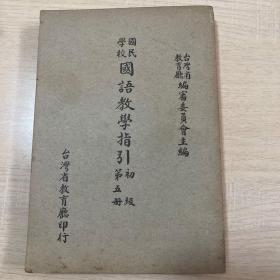 台灣省教育廳編審委員會主編
國民學校國語教學指引初級第五册
台灣省教育廳印行